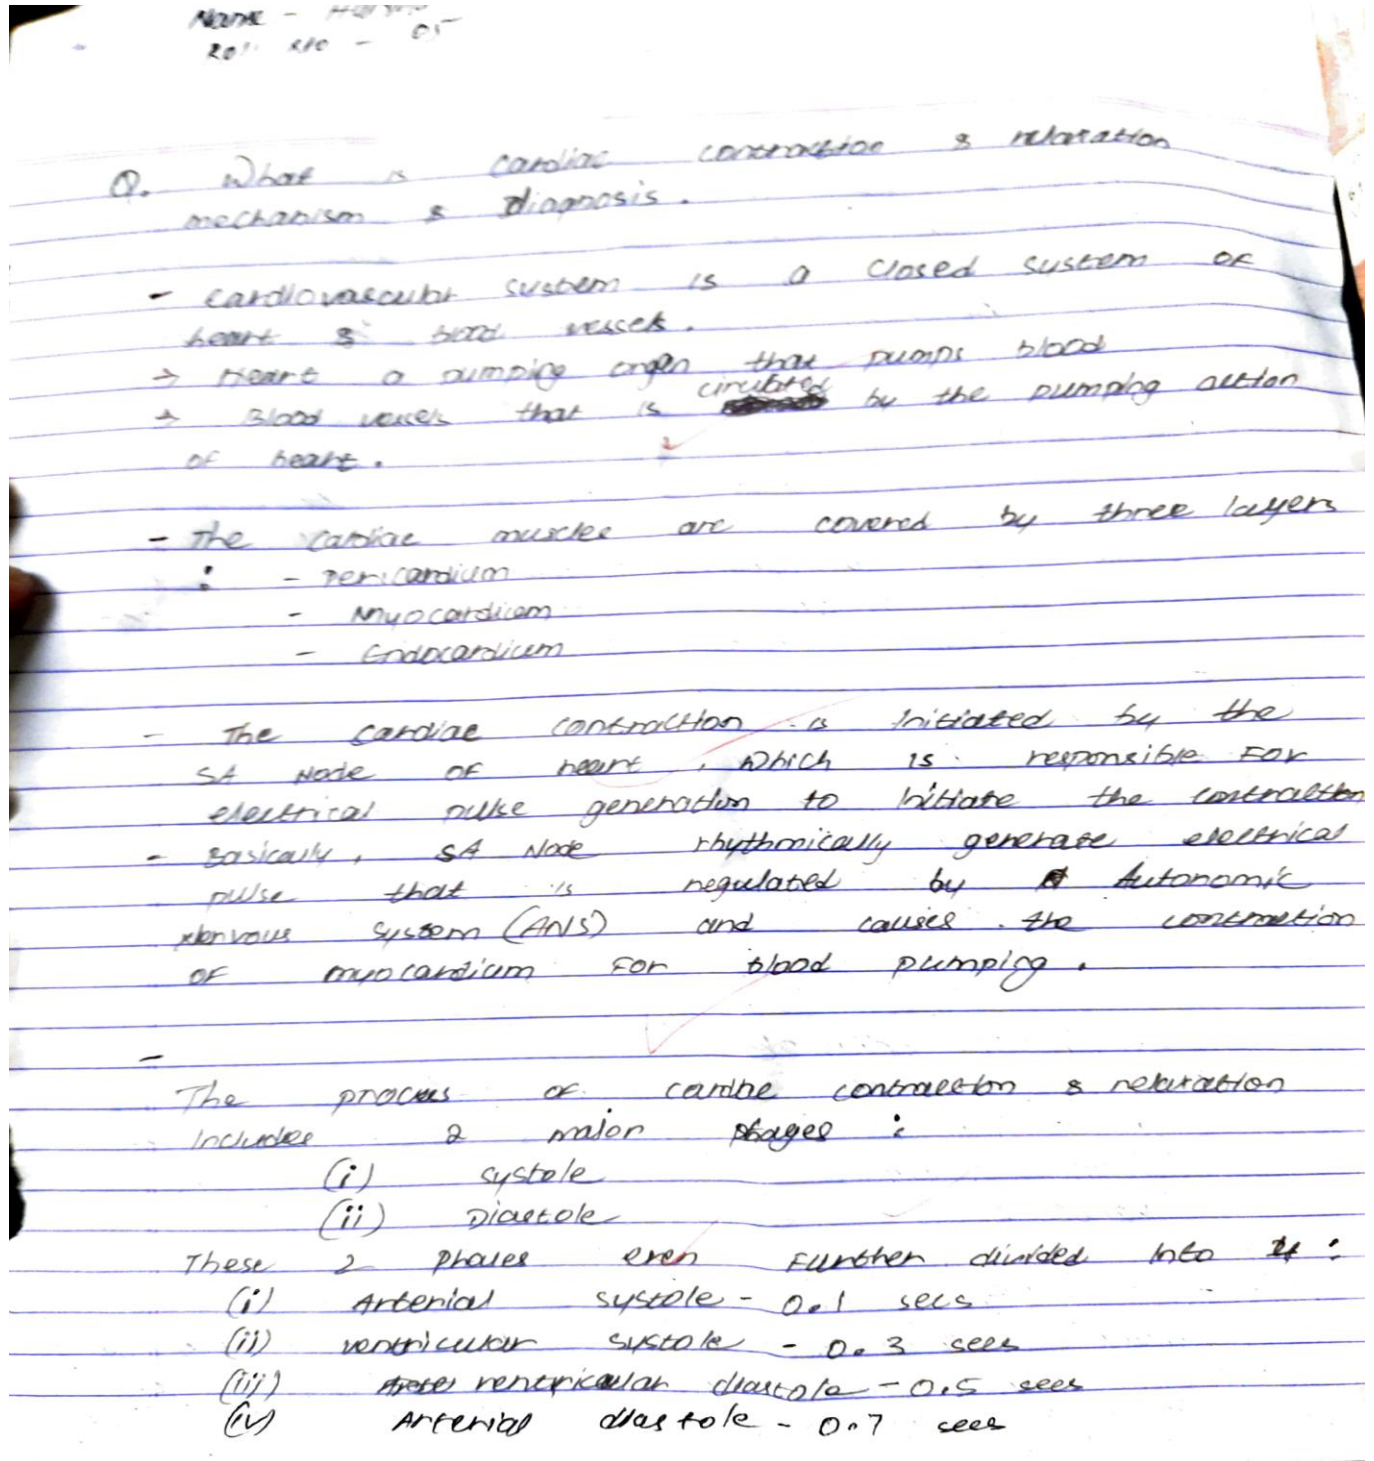 Name -
Roll No - 05
Q. What is cardiac contraction & relaxation
mechanism & Diagnosis.
- Cardiovascular system is a closed system of
heart & blood vessels.
→ Heart a pumping organ that pumps blood
→ Blood vessels that is circulated by the pumping action
of heart.
- The cardiac muscles are covered by three layers
: - Pericardium
- Myocardium
- Endocardium
- The cardiac contraction is initiated by the
SA Node of heart, which is responsible for
electrical pulse generation to initiate the contraction
- Basically, SA Node rhythmically generate electrical
pulse that is regulated by Autonomic
Nervous System (ANS) and causes the contraction
of myocardium for blood pumping.
-
The process of cardiac contraction & relaxation
includes 2 major phages :
(i) systole
(ii) Diastole
These 2 phases even further divided into :
(i) Arterial systole - 0.1 secs
(ii) ventricular systole - 0.3 secs
(iii) ventricular diastole - 0.5 secs
(iv) Arterial diastole - 0.7 secs